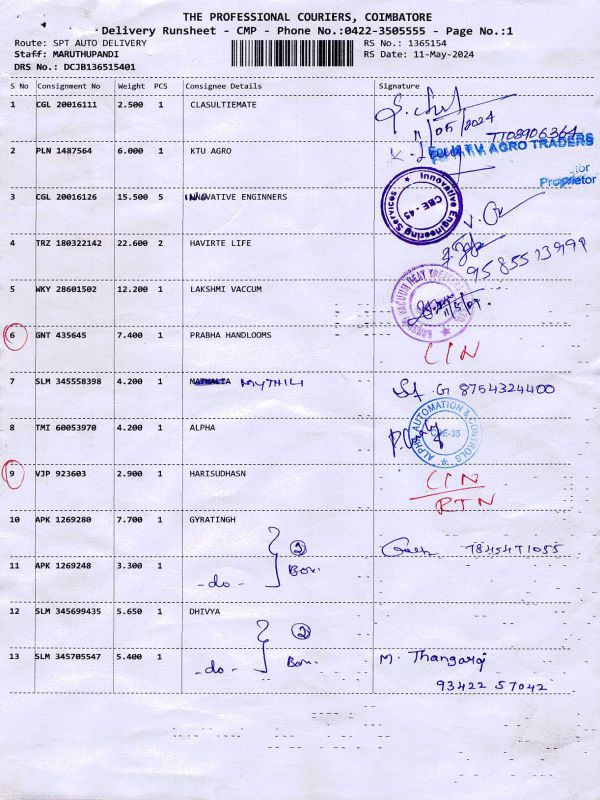 THE PROFESSIONAL COURIERS, COIMBATORE
Delivery Runsheet - CMP - Phone No.:0422-3505555 - Page No.:1
Route: SPT AUTO DELIVERY RS No.: 1365154
Staff: MARUTHUPANDI RS Date: 11-May-2024
DRS No.: DCJB136515401
S No Consignment No Weight PCS Consignee Details Signature
1 CGL 20016111 2.500 1 CLASULTIEMATE
11/05/2024
2 PLN 1487564 6.000 1 KTU AGRO
AGRO TRADERS
Proprietor
3 CGL 20016126 15.500 5 INNOVATIVE ENGINNERS
Innovative Engineering Services CBE - 45
4 TRZ 180322142 22.600 2 HAVIRTE LIFE
5 WKY 28601502 12.200 1 LAKSHMI VACCUM
6 GNT 435645 7.400 1 PRABHA HANDLOOMS CIN
7 SLM 345558398 4.200 1 MYTHILI G 8754324400
8 TMI 60053970 4.200 1 ALPHA
ALPHA AUTOMATION & CONTROLS CBE-35
9 VJP 923603 2.900 1 HARISUDHASN CIN
RTN
10 APK 1269280 7.700 1 GYRATINGH
2 Box. 7845471055
11 APK 1269248 3.300 1 - do -
12 SLM 345699435 5.650 1 DHIVYA
2 Box.
13 SLM 345705547 5.400 1 - do - M. Thangaraj
93422 57042